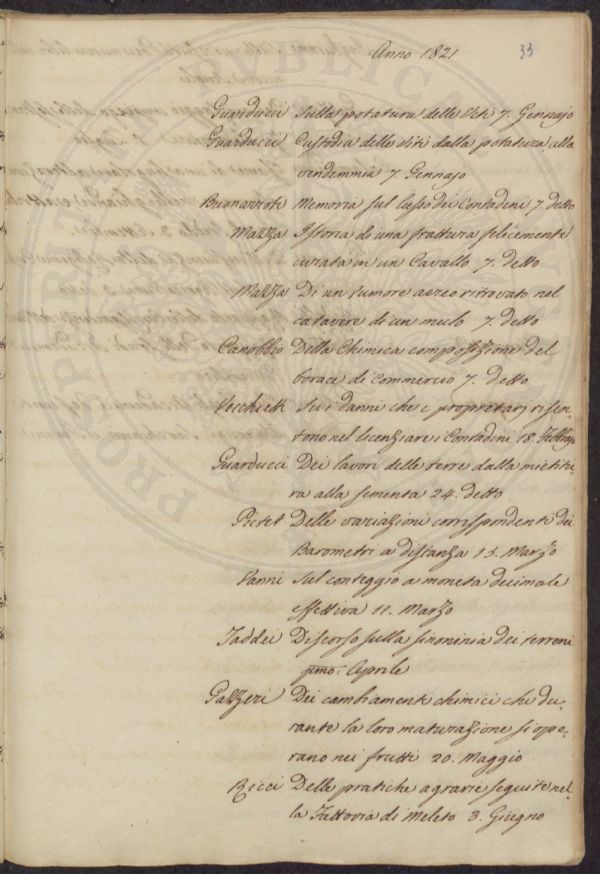 Anno 1821
33
Guarducci Sulla potatura delle Viti 7. Gennajo
Guarducci Custodia delle Viti dalla potatura alla
vendemmia 7. Gennajo
Buonarroti Memoria sul lasso dei Contadini 7. detto
Mazza Istoria di una frattura felicemente
curata in un Cavallo 7. detto
Mazza Di un tumore aereo ritrovato nel
cadavere di un mulo 7. detto
Canobbio Della Chimica composizione del
borace di Commercio 7. detto
Vecchietti Su i danni che i proprietarj risen-
tono nel licenziare i Contadini 18. Febbrajo
Guarducci Dei lavori delle terre dalla mietitu-
ra alla sementa 24. detto
Pictet Delle variazioni corrispondenti dei
Barometri a distanza 15. Marzo
Vanni Sul conteggio a moneta decimale
effettiva 11. Marzo
Taddei Discorso sulla sinonimia dei terreni
pmo. Aprile
Gazzeri Dei cambiamenti chimici che du-
rante la loro maturazione si ope-
rano nei frutti 20. Maggio
Ricci Delle pratiche agrarie seguite nel-
la Fattoria di Meleto 3. Giugno
PROSPERITATI PUBLICAE